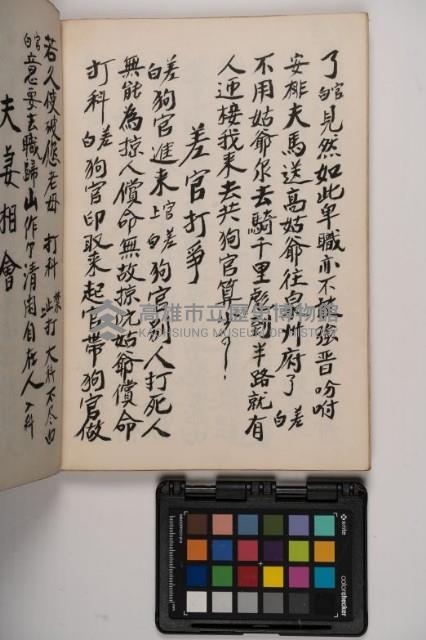 了官白見然如此卑職亦不敢強晋吩咐
安排夫馬送高姑爺往泉州府了差白
不用姑爺尔去騎千里馬到半路就有
人迎接我来去共狗官算
差官打爭
差白狗官進来上官白差狗官别人打死人
無能為掠人償命無故掠阮姑爺償命
打科差白狗官印取来起官带狗官做
夫妻相會
官白意要去職歸山作个清閑自在人入科
若久使被
老母打科
高雄市立歷史博物館
KAOHSIUNG MUSEUM OF HISTORY
x-rite
colorchecker